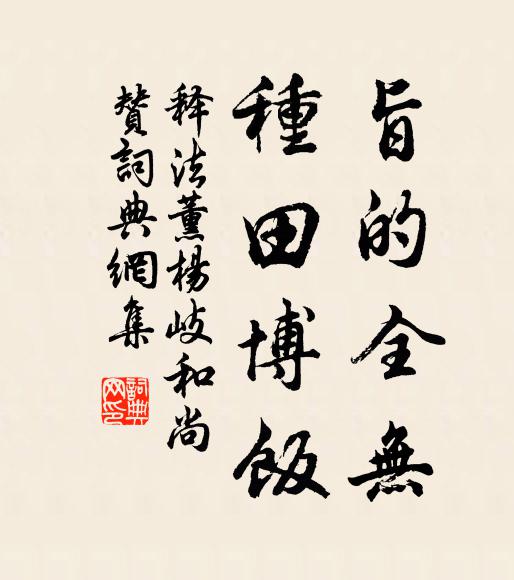 旨的全無
種田博飯
释法薰楊岐和尚
贊詞典網集
詞典网印